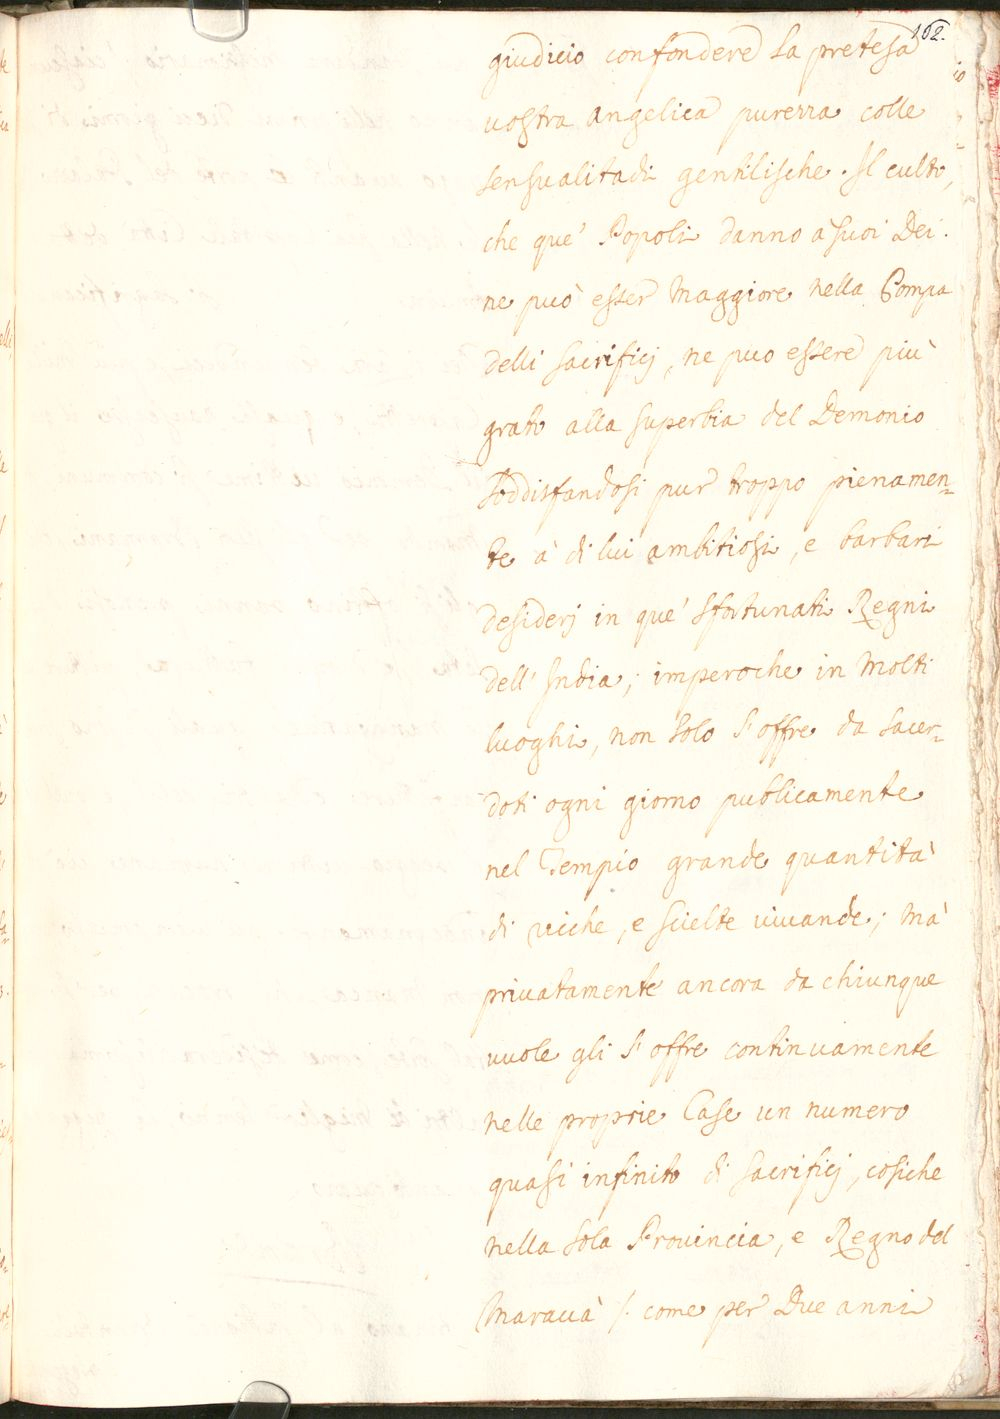 102.
giudicio confondere la pretesa
uostra angelica purezza colle
sensualitadi gentilische. Il culto,
che que' Popoli danno a suoi Dei.
ne può esser maggiore nella Pompa
delli sacrificj, ne puo essere più
grato alla superbia del Demonio
soddisfandosi pur troppo pienamen=
te à di lui ambitiosi, e barbari
desiderj in que' sfortunati Regni
dell' India; imperoche in molti
luoghi, non solo s' offre da sacer=
doti ogni giorno publicamente
nel Tempio grande quantità
di ricche, e scielte uiuande; mà
priuatamente ancora da chiunque
uuole gli s' offre continuamente
nelle proprie Case un numero
quasi infinito di sacrificj, cosiche
nella sola Prouincia, e Regno del
Marauà /: come per Due anni